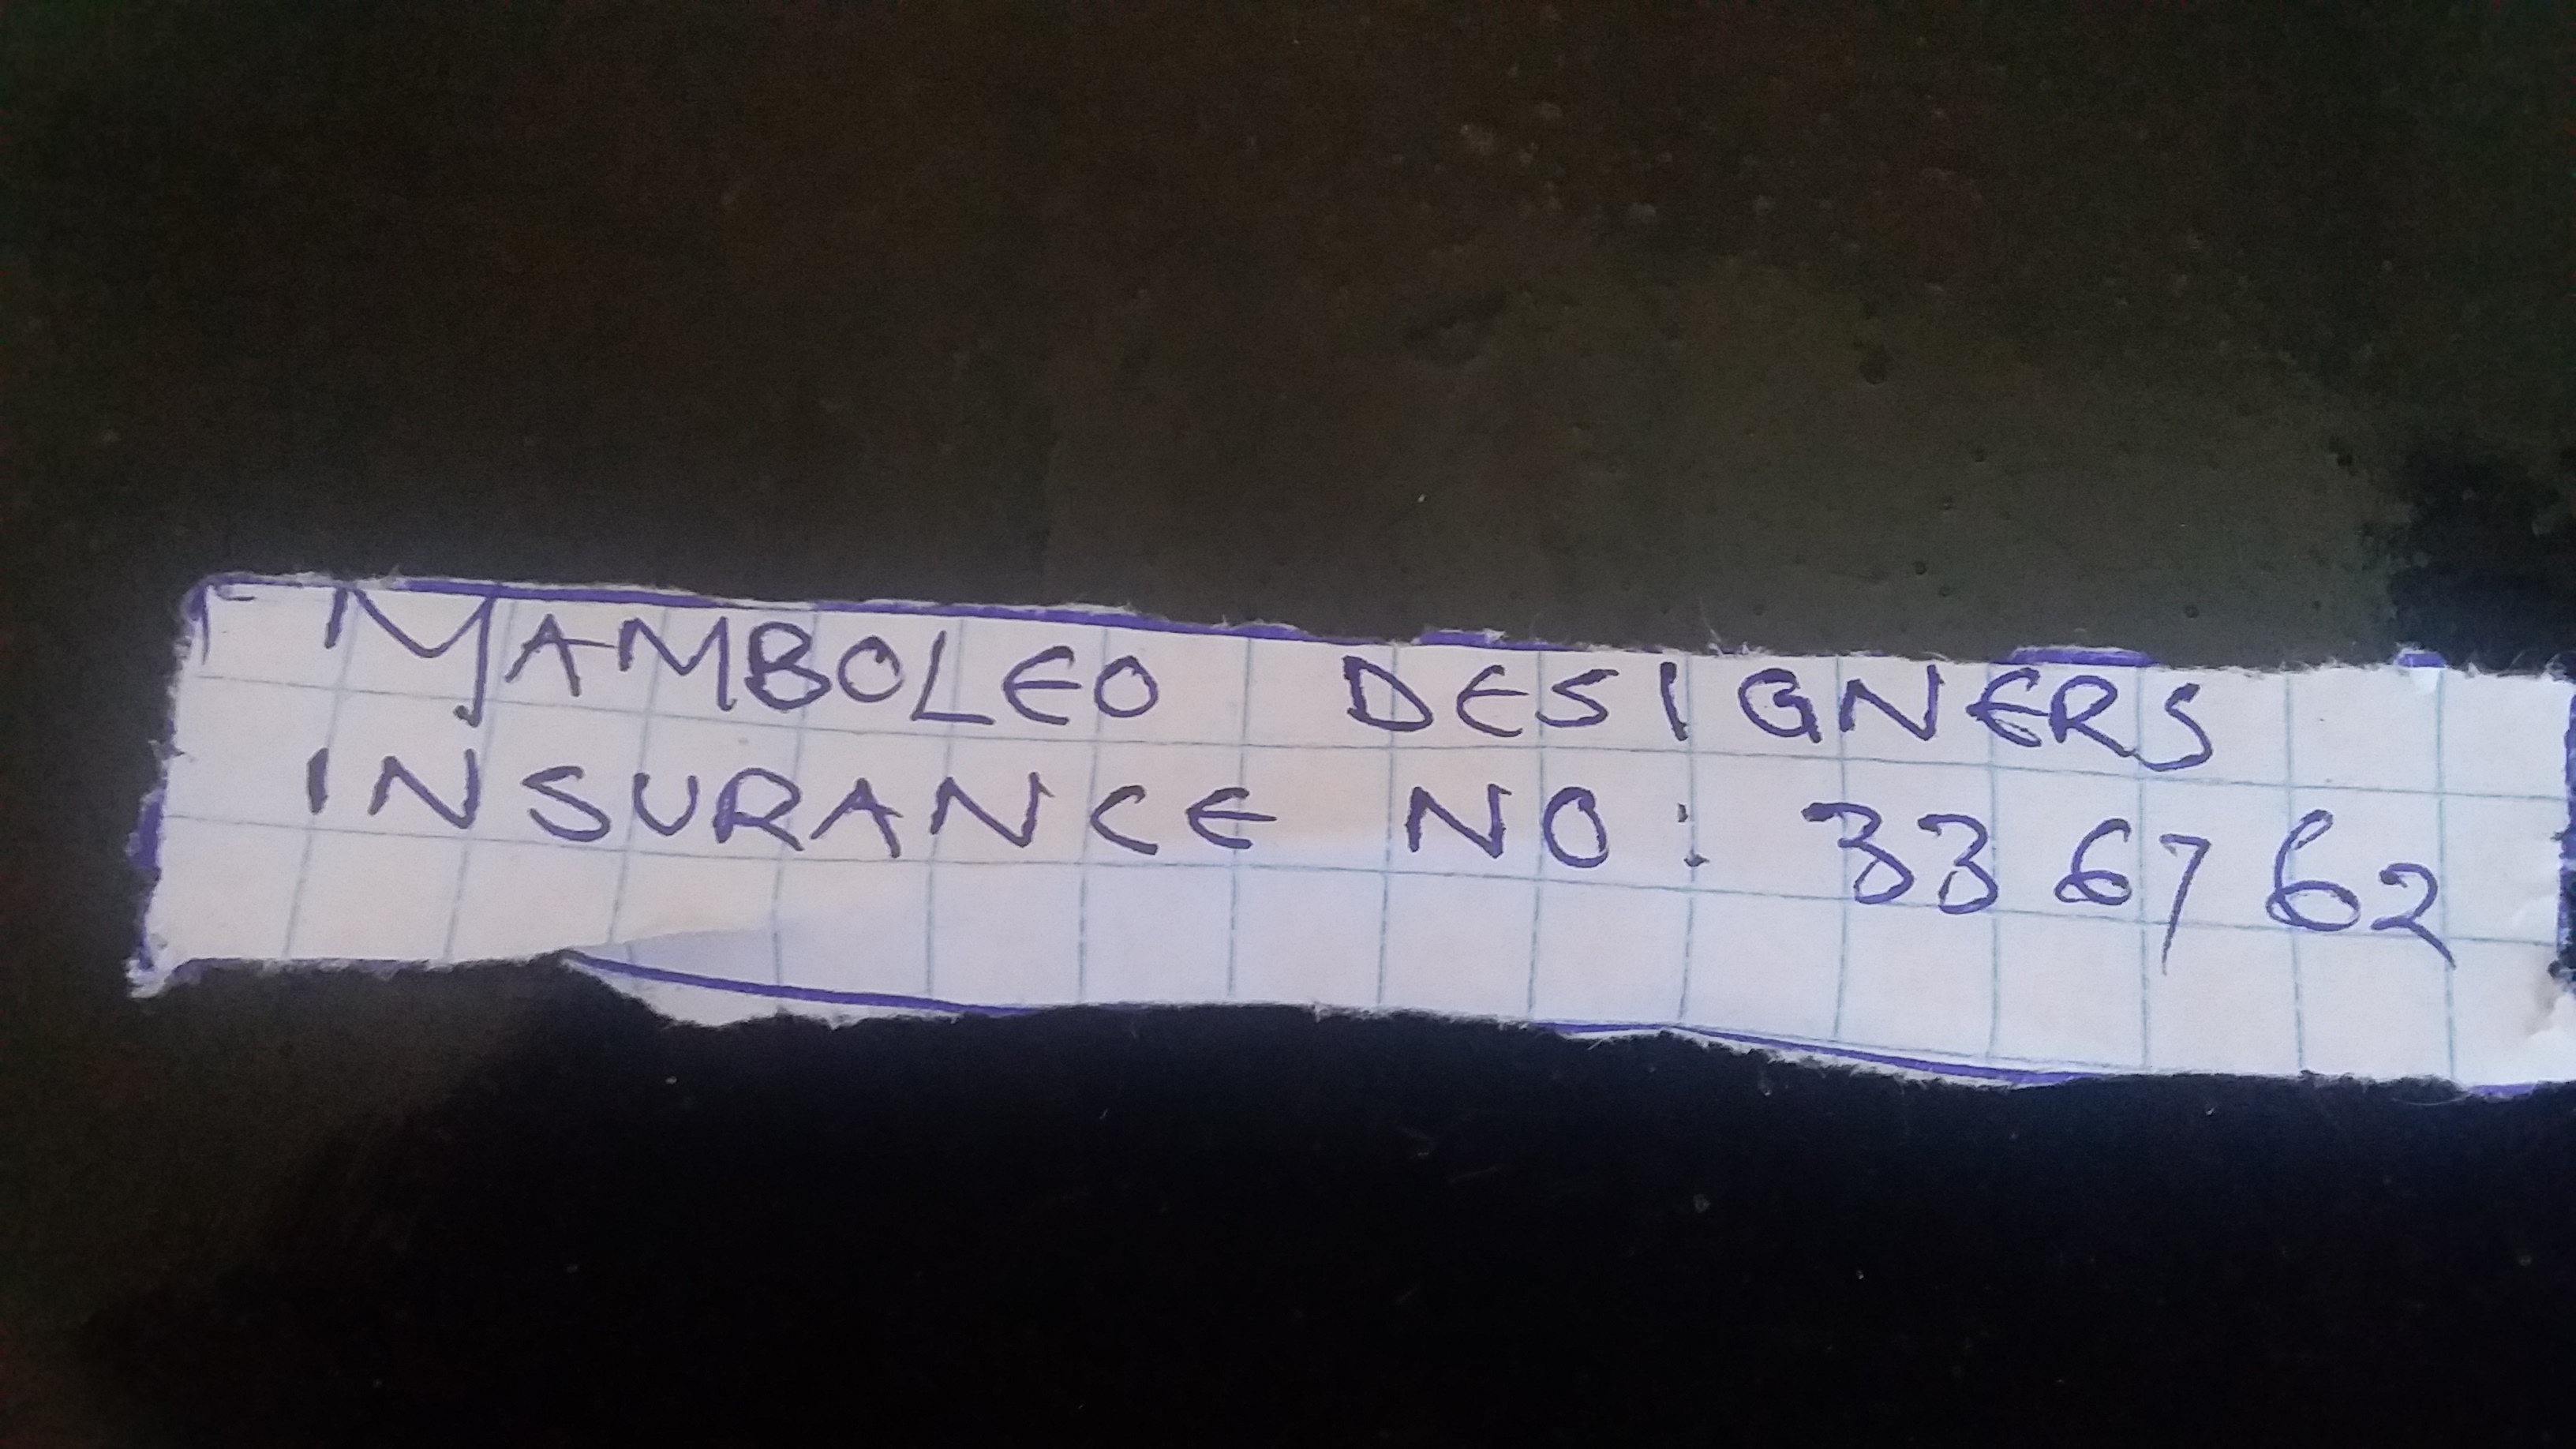 MAMBOLEO DESIGNERS
INSURANCE NO: 336762